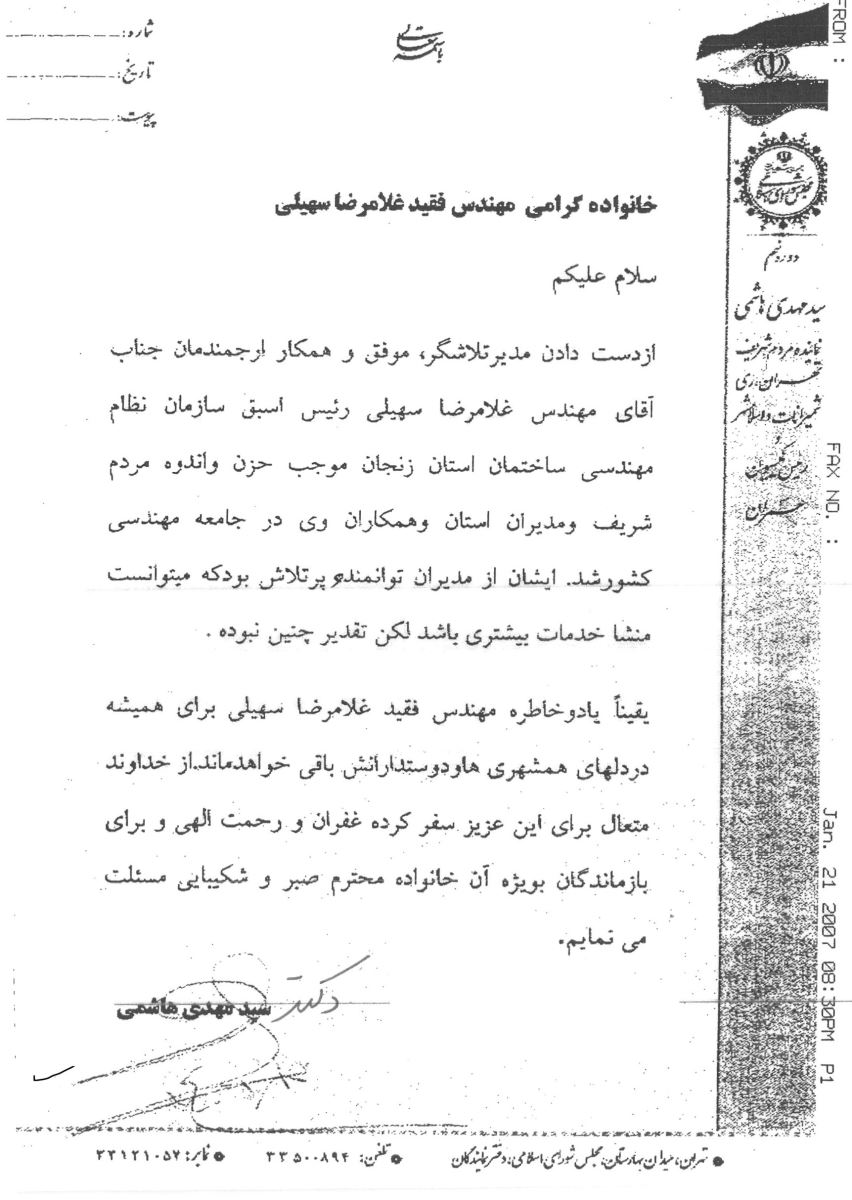 باسمه تعالی
شماره:
تاریخ:
پیوست:
FROM :
مجلس شورای اسلامی
دوره نهم
سید مهدی هاشمی
نماینده مردم شریف
تهران، ری
شمیرانات و اسلامشهر
و
رئیس کمیسیون
عمران
FAX NO. :
Jan. 21 2007 08:30PM P1
خانواده گرامی مهندس فقید غلامرضا سهیلی
سلام علیکم
ازدست دادن مدیرتلاشگر، موفق و همکار ارجمندمان جناب
آقای مهندس غلامرضا سهیلی رئیس اسبق سازمان نظام
مهندسی ساختمان استان زنجان موجب حزن واندوه مردم
شریف ومدیران استان وهمکاران وی در جامعه مهندسی
کشورشد. ایشان از مدیران توانمندوپرتلاش بودکه میتوانست
منشا خدمات بیشتری باشد لکن تقدیر چنین نبوده .
یقیناً یادوخاطره مهندس فقید غلامرضا سهیلی برای همیشه
دردلهای همشهری هاودوستدارانش باقی خواهدماند.از خداوند
متعال برای این عزیز سفر کرده غفران و رحمت الهی و برای
بازماندگان بویژه آن خانواده محترم صبر و شکیبایی مسئلت
می نمایم.
دکتر سید مهدی هاشمی
تهران، میدان بهارستان، مجلس شورای اسلامی، دفتر نمایندگان
تلفن: ۳۳۵۰۰۸۹۴
نمابر: ۲۲۱۲۱۰۵۷